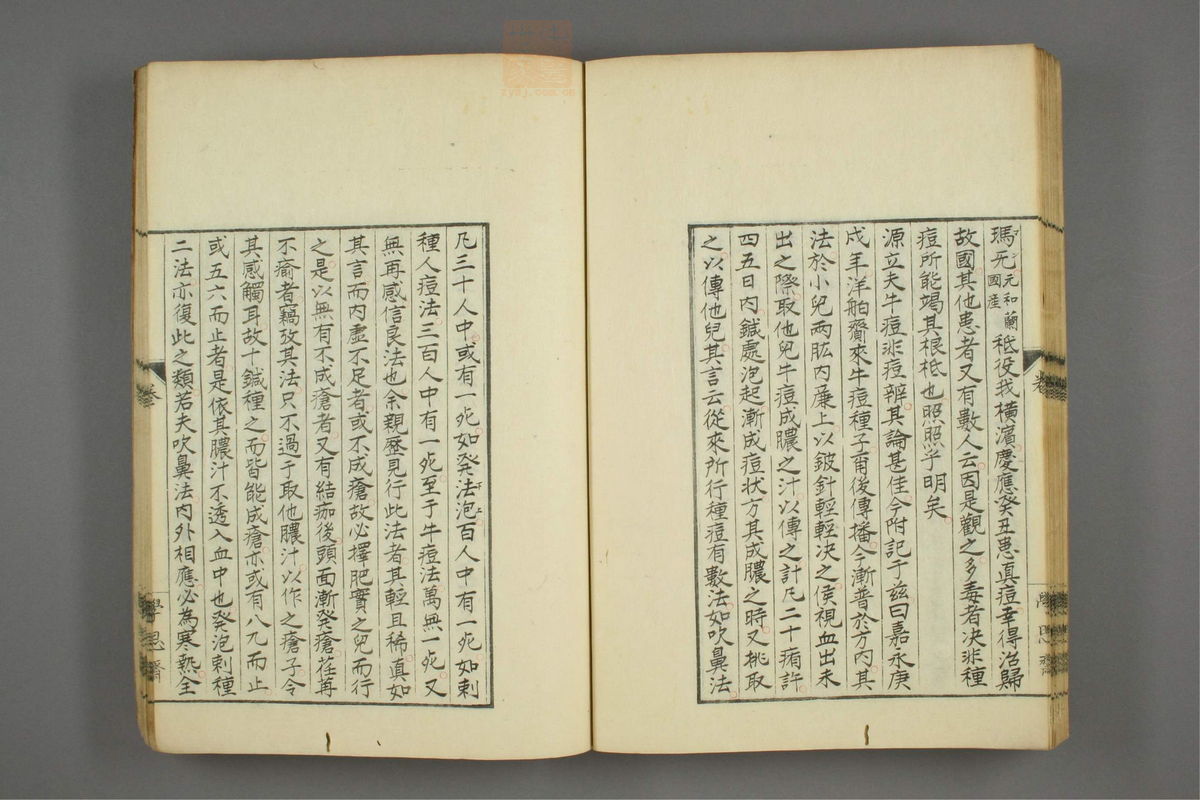 瑪旡元和蘭國産秪役我橫濱慶應癸丑患真痘幸得治歸
故國其他患者又有數人云因是觀之多毒者决非種
痘所能竭其根柢也照照乎明矣
源立夫牛痘非痘辨其論甚佳今附記于玆曰嘉永庚
戌年洋舶齎來牛痘種子爾後傳播今漸普於方内其
法於小兒兩肱内廉上以鈹針輕輕决之俟視血出未
出之際取他兒牛痘成膿之汁以傳之計凡二十痏許
四五日内鍼處泡起漸成痘狀方其成膿之時又挑取
之以傳他兒其言云從來所行種痘有數法如吹鼻法
凡三十人中或有一死如發泡法百人中有一死如刺
種人痘法三百人中有一死至于牛痘法萬無一死又
無再感信良法也余親歷見行此法者其輕且稀真如
其言而内虛不足者或不成瘡故必擇肥實之兒而行
之是以無有不成瘡者又有結痂後頭面漸發瘡荏苒
不瘉者竊攷其法只不過于取他膿汁以作之瘡子令
其感觸耳故十鍼種之而皆能成瘡亦或有八九而止
或五六而止者是依其膿汁不透入血中也發泡刺種
二法亦復此之類若夫吹鼻法内外相應必為寒熱全
卷
學思齋